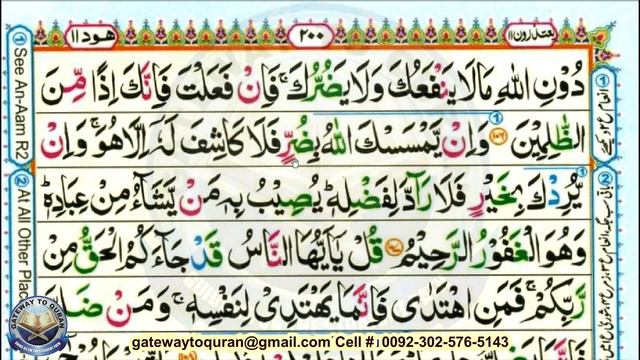 هود ١١
٢٠٠
يعتذرون ١١
دُوۡنِ اللّٰهِ مَا لَا يَنۡفَعُكَ وَلَا يَضُرُّكَ ۚ فَاِنۡ فَعَلۡتَ فَاِنَّكَ اِذًا مِّنَ
الظّٰلِمِيۡنَ ﴿١٠٦﴾ وَاِنۡ يَّمۡسَسۡكَ اللّٰهُ بِضُرٍّ فَلَا كَاشِفَ لَهٗۤ اِلَّا هُوَ ۚ وَاِنۡ
يُّرِدۡكَ بِخَيۡرٍ فَلَا رَآدَّ لِفَضۡلِهٖ ؕ يُصِيۡبُ بِهٖ مَنۡ يَّشَآءُ مِنۡ عِبَادِهٖ ؕ
وَهُوَ الۡغَفُوۡرُ الرَّحِيۡمُ ﴿١٠٧﴾ قُلۡ يٰۤاَيُّهَا النَّاسُ قَدۡ جَآءَكُمُ الۡحَقُّ مِنۡ
رَّبِّكُمۡ ۚ فَمَنِ اهۡتَدٰى فَاِنَّمَا يَهۡتَدِىۡ لِنَفۡسِهٖ ۚ وَمَنۡ ضَلَّ
① See An-Aam R2
② At All Other Plac
GATEWAY TO QURAN
gatewaytoquran@gmail.com Cell # 0092-302-576-5143